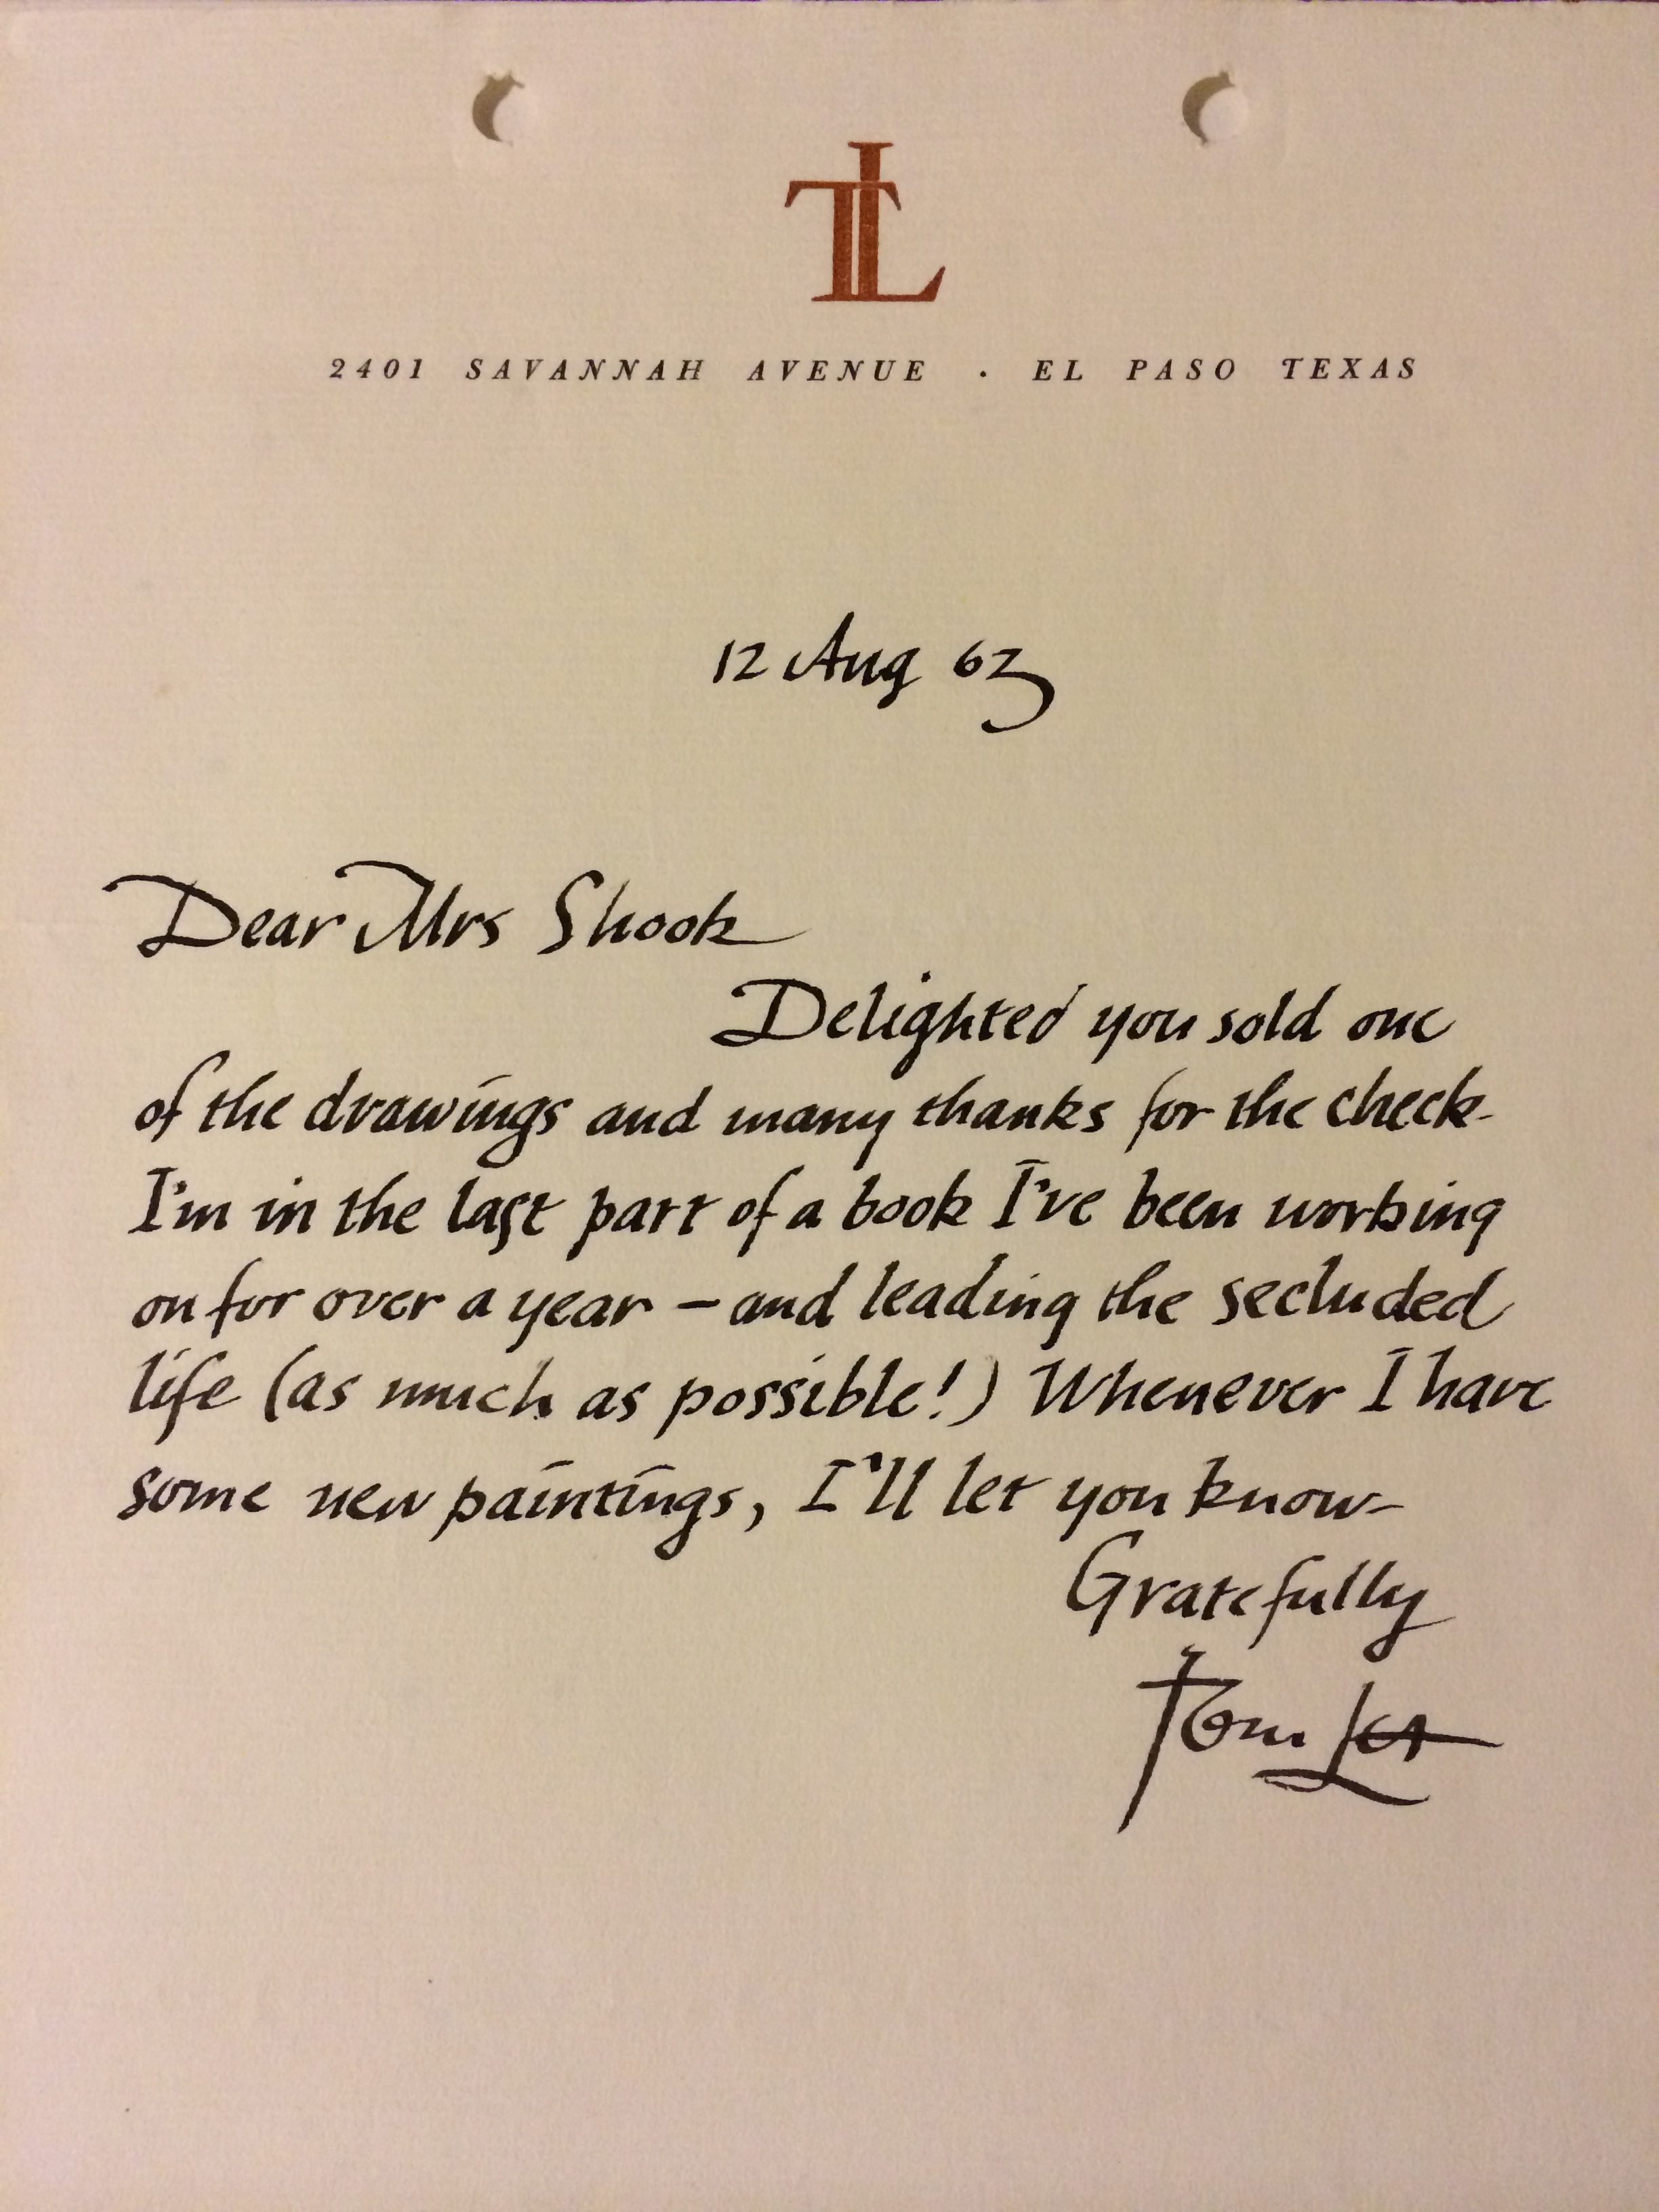 TL
2401 SAVANNAH AVENUE · EL PASO TEXAS
12 Aug 63
Dear Mrs Shook
Delighted you sold one
of the drawings and many thanks for the check-
I'm in the last part of a book I've been working
on for over a year – and leading the secluded
life (as much as possible!) Whenever I have
some new paintings, I'll let you know-
Gratefully
Tom Lea